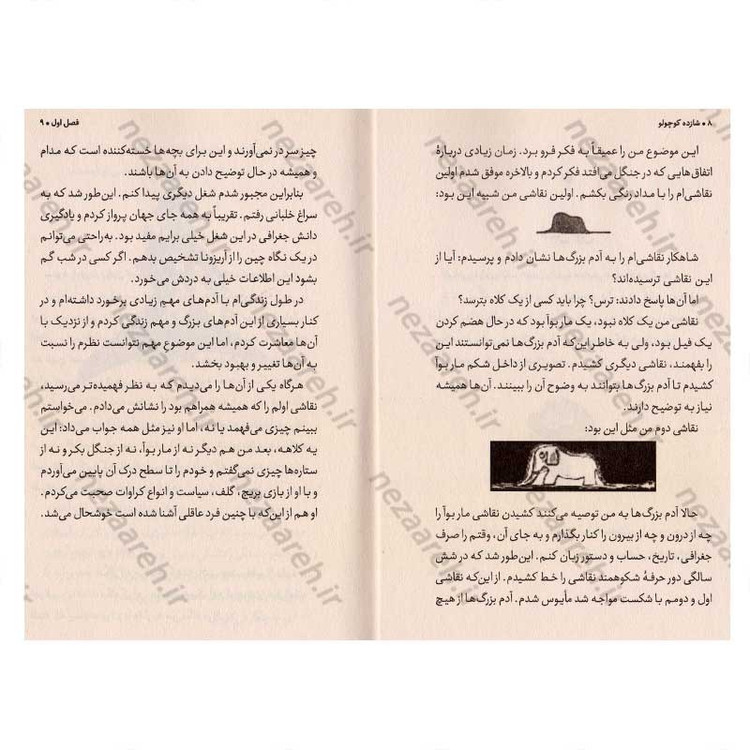 ۸ • شازده کوچولو
این موضوع من را عمیقاً به فکر فرو برد. زمان زیادی دربارهٔ
اتفاق‌هایی که در جنگل می‌افتد فکر کردم و بالاخره موفق شدم اولین
نقاشی‌ام را با مداد رنگی بکشم. اولین نقاشی من شبیه این بود:
شاهکار نقاشی‌ام را به آدم بزرگ‌ها نشان دادم و پرسیدم: آیا از
این نقاشی ترسیده‌اند؟
اما آن‌ها پاسخ دادند: ترس؟ چرا باید کسی از یک کلاه بترسد؟
نقاشی من یک کلاه نبود، یک مار بوآ بود که در حال هضم کردن
یک فیل بود، ولی به خاطر این‌که آدم بزرگ‌ها نمی‌توانستند این
را بفهمند، نقاشی دیگری کشیدم. تصویری از داخل شکم مار بوآ
کشیدم تا آدم بزرگ‌ها بتوانند به وضوح آن را ببینند. آن‌ها همیشه
نیاز به توضیح دارند.
نقاشی دوم من مثل این بود:
حالا آدم بزرگ‌ها به من توصیه می‌کنند کشیدن نقاشی مار بوآ را
چه از درون و چه از بیرون را کنار بگذارم و به جای آن، وقتم را صرف
جغرافی، تاریخ، حساب و دستور زبان کنم. این‌طور شد که در شش
سالگی دور حرفهٔ شکوهمند نقاشی را خط کشیدم. از این‌که نقاشی
اول و دومم با شکست مواجه شد مأیوس شدم. آدم بزرگ‌ها از هیچ
فصل اول • ۹
چیز سر در نمی‌آورند و این برای بچه‌ها خسته‌کننده است که مدام
و همیشه در حال توضیح دادن به آن‌ها باشند.
بنابراین مجبور شدم شغل دیگری پیدا کنم. این‌طور شد که به
سراغ خلبانی رفتم. تقریباً به همه جای جهان پرواز کردم و یادگیری
دانش جغرافی در این شغل خیلی برایم مفید بود. به‌راحتی می‌توانم
در یک نگاه چین را از آریزونا تشخیص بدهم. اگر کسی در شب گم
بشود این اطلاعات خیلی به دردش می‌خورد.
در طول زندگی‌ام با آدم‌های مهم زیادی برخورد داشته‌ام و در
کنار بسیاری از این آدم‌های بزرگ و مهم زندگی کردم و از نزدیک با
آن‌ها معاشرت کردم، اما این موضوع مهم نتوانست نظرم را نسبت
به آن‌ها تغییر و بهبود بخشد.
هرگاه یکی از آن‌ها را می‌دیدم که به نظر فهمیده‌تر می‌رسید،
نقاشی اولم را که همیشه همراهم بود را نشانش می‌دادم. می‌خواستم
ببینم چیزی می‌فهمد یا نه، اما او نیز مثل همه جواب می‌داد: این
یه کلاهه، بعد من هم دیگر نه از مار بوآ، نه از جنگل بکر و نه از
ستاره‌ها چیزی نمی‌گفتم و خودم را تا سطح درک آن پایین می‌آوردم
و با او از بازی بریج، گلف، سیاست و انواع کراوات صحبت می‌کردم.
او هم از این‌که با چنین فرد عاقلی آشنا شده است خوشحال می‌شد.
nezaareh.ir